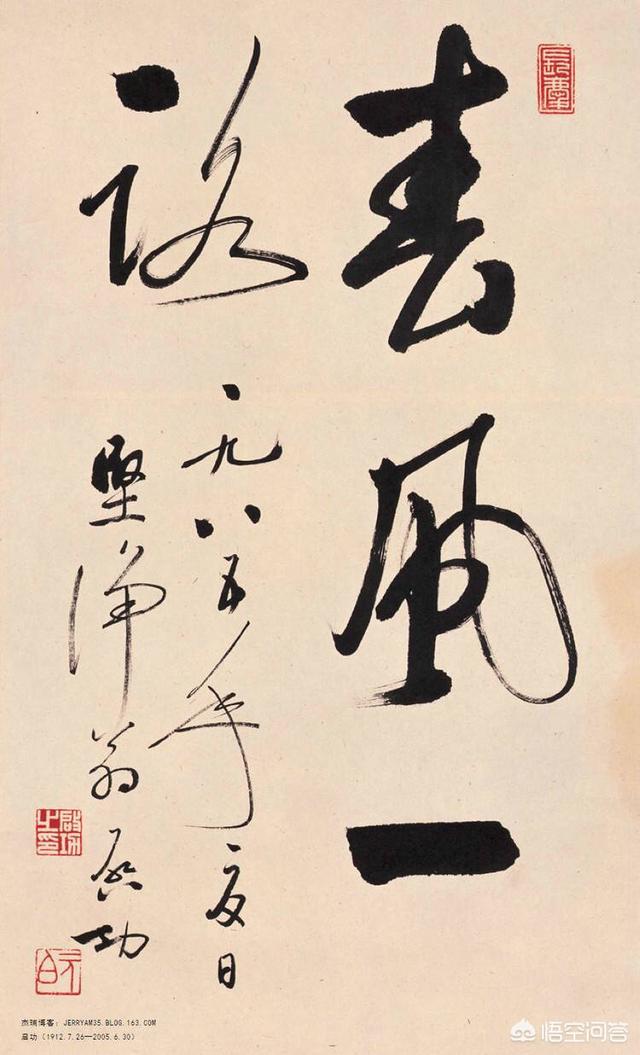 春風一
路
一九八五年夏日
堅淨翁啓功
啓功之印
元白
杰瑞博客：JERRYAM35.BLOG.163.COM
启功（1912.7.26—2005.6.30）
悟空问答